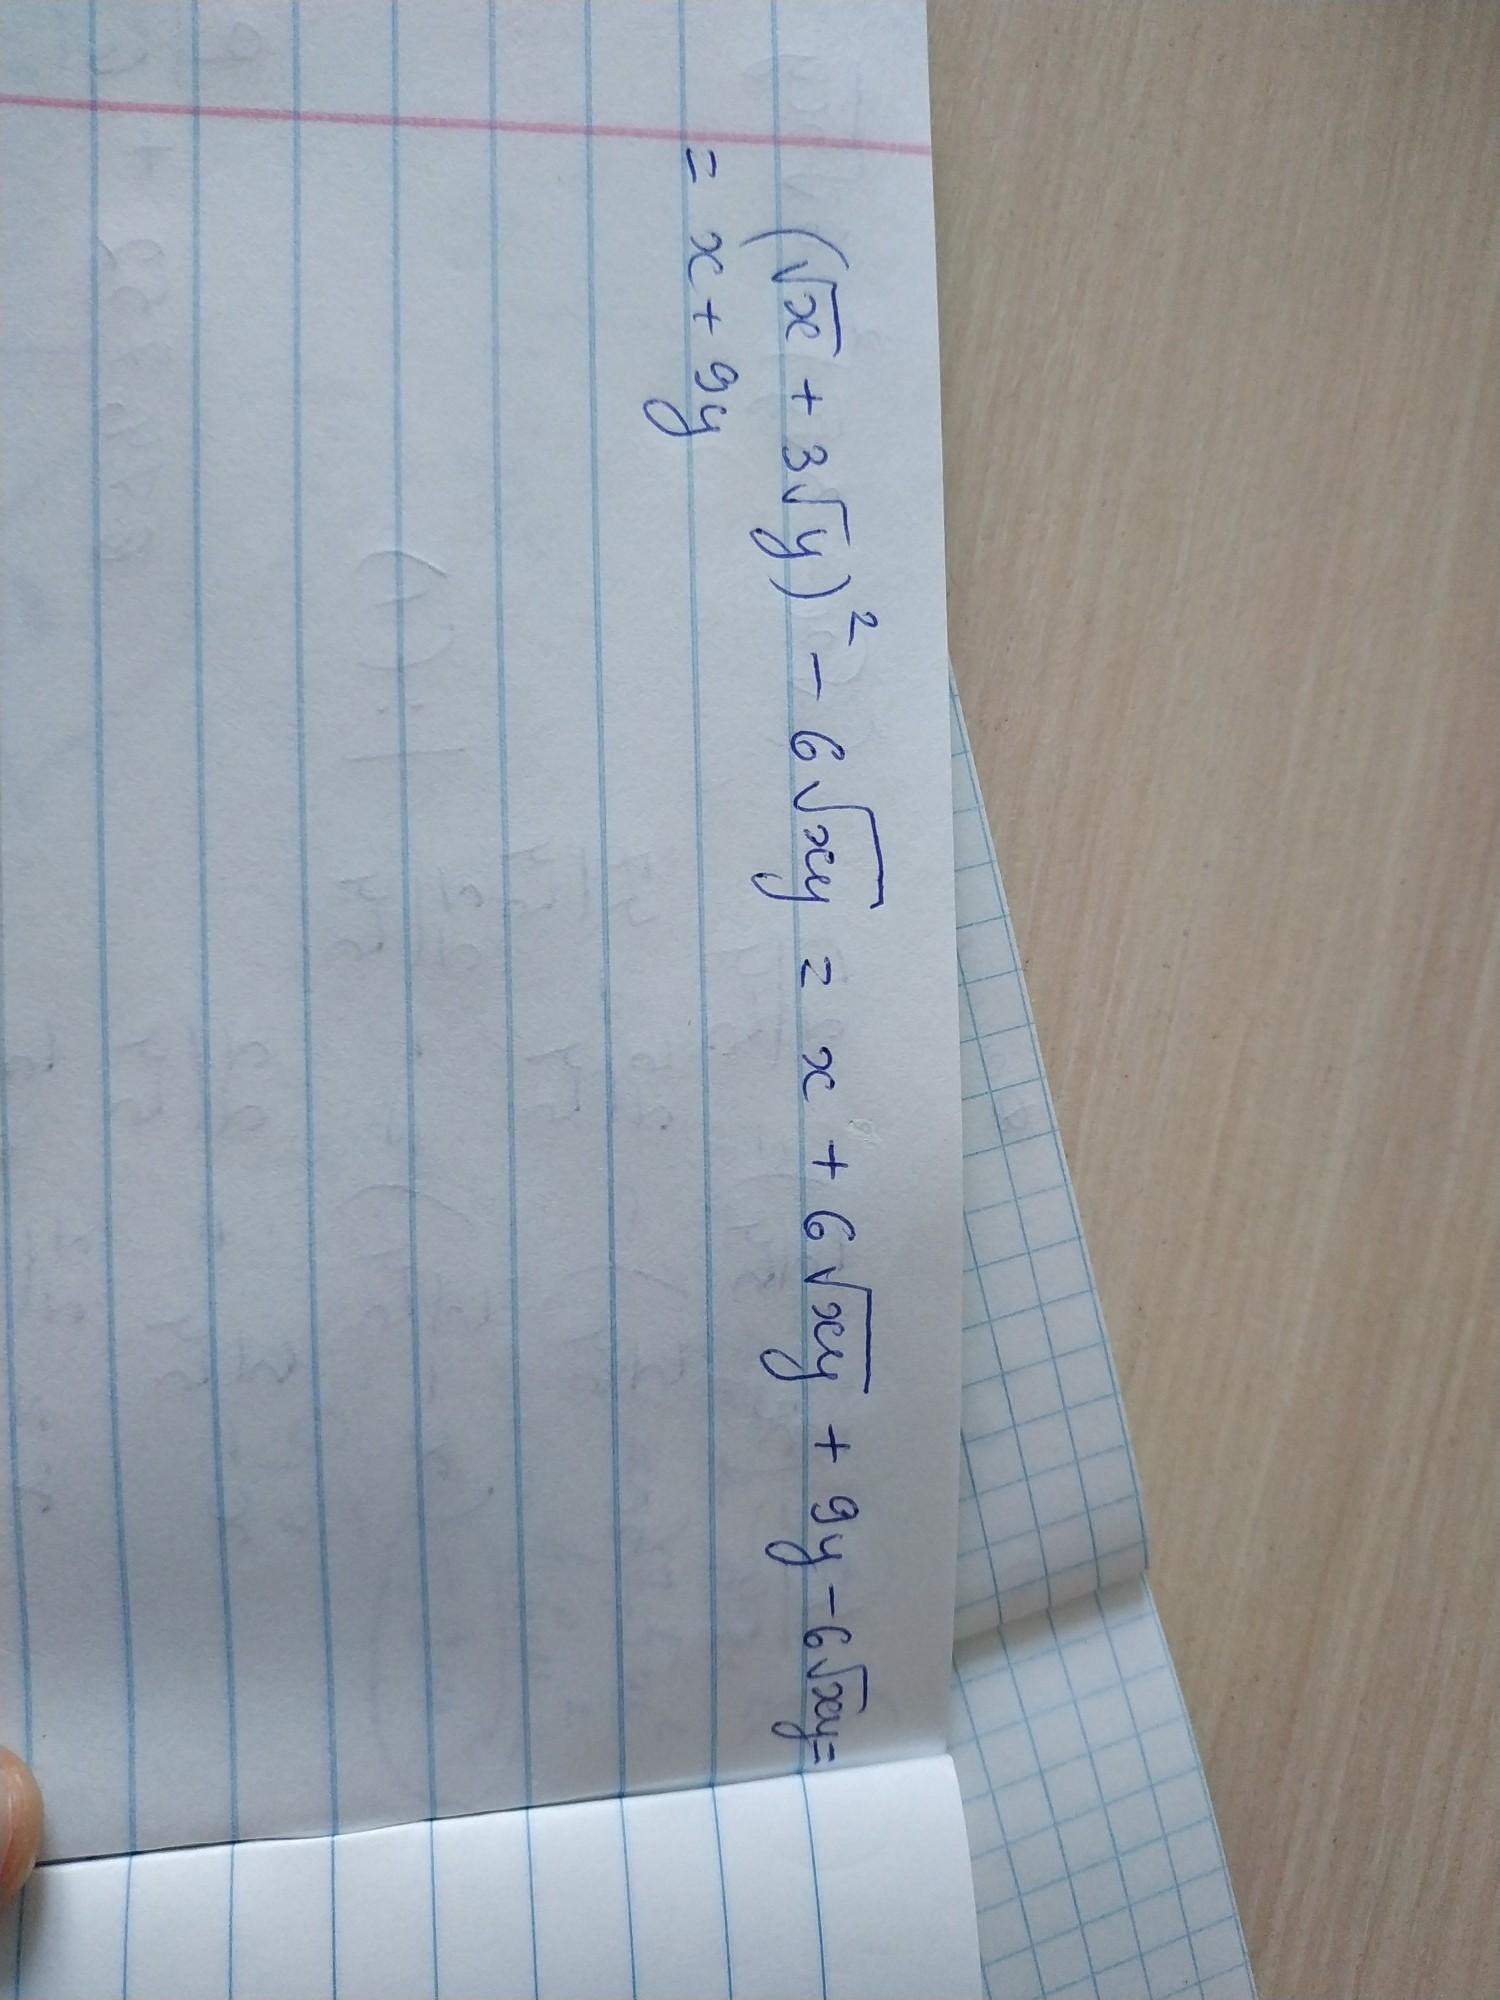 (√x + 3√y)² - 6√xy = x + 6√xy + 9y - 6√xy =
= x + 9y